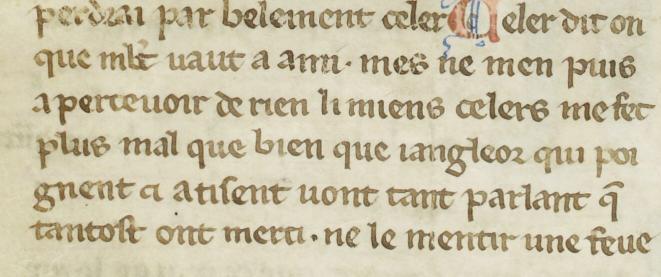 perdrai par belement celer Celer dit on
que mlt̃ uaut a ami· mes ne men puis
aperceuoir de rien li miens celers me fet
plus mal que bien que iangleor qui poi
gnent ci atisent uont tant parlant q̃
tantost ont merci· ne le mentir une feue